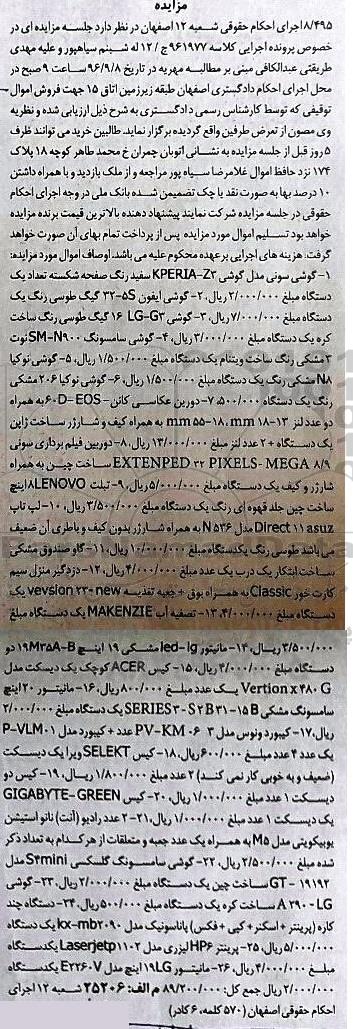 مزایده
۸/۴۹۵اجرای احکام حقوقی شعبه ۱۲ اصفهان در نظر دارد جلسه مزایده ای در
خصوص پرونده اجرایی کلاسه ۹۶۱۹۷۷ج / ۱۲ له شبنم سیاهپور و علیه مهدی
طریقتی عبدالکافی مبنی بر مطالبه مهریه در تاریخ ۹۶/۹/۸ ساعت ۹ صبح در
محل اجرای احکام دادگستری اصفهان طبقه زیرزمین اتاق ۱۵ جهت فروش اموال
توقیفی که توسط کارشناس رسمی دادگستری به شرح ذیل ارزیابی شده و نظریه
وی مصون از تعرض طرفین واقع گردیده برگزار نماید. طالبین خرید می توانند ظرف
۵ روز قبل از جلسه مزایده به نشانی اتوبان چمران خ محمد طاهر کوچه ۱۸ پلاک
۱۷۴ نزد حافظ اموال غلامرضا سیاه پور مراجعه و از ملک بازدید و با همراه داشتن
۱۰ درصد بها به صورت نقد یا چک تضمین شده بانک ملی در وجه اجرای احکام
حقوقی در جلسه مزایده شرکت نمایند پیشنهاد دهنده بالاترین قیمت برنده مزایده
خواهد بود تسلیم اموال مورد مزایده پس از پرداخت تمام بهای آن صورت خواهد
گرفت. هزینه های اجرایی برعهده محکوم علیه می باشد. اوصاف اموال مورد مزایده:
۱- گوشی سونی مدل گوشی KPERIA-Z۳ سفید رنگ صفحه شکسته تعداد یک
دستگاه مبلغ ۲/۰۰۰/۰۰۰ ریال، ۲- گوشی ایفون ۵S-۳۲ گیگ طوسی رنگ یک
دستگاه مبلغ ۷/۰۰۰/۰۰۰ ریال، ۳- گوشی LG-G۳ ۱۶ گیگ طوسی رنگ ساخت
کره یک دستگاه مبلغ ۳/۰۰۰/۰۰۰ ریال، ۴- گوشی سامسونگ SM-N۹۰۰ نوت
۳ مشکی رنگ ساخت ویتنام یک دستگاه مبلغ ۱/۵۰۰/۰۰۰ ریال، ۵- گوشی نوکیا
N۸ مشکی رنگ یک دستگاه مبلغ ۱/۵۰۰/۰۰۰ ریال، ۶- گوشی نوکیا ۲۰۶ مشکی
رنگ یک دستگاه ۵۰۰/۰۰۰، ۷- دوربین عکاسی کانن- ۶۰D- EOS به همراه
دو عدد لنز ۱۳-۱۸ mm ،۱۸-۵۵ mm به همراه کیف و شارژر ساخت ژاپن
یک دستگاه + ۲ عدد لنز مبلغ ۱۳/۰۰۰/۰۰۰ ریال، ۸- دوربین فیلم برداری سونی
EXTENPED ۳۲ PIXELS- MEGA ۸/۹ ساخت چین به همراه
شارژر و کیف یک دستگاه مبلغ ۵/۰۰۰/۰۰۰ ریال، ۹- تبلت LENOVO ۸ اینچ
ساخت چین جلد قهوه ای رنگ یک دستگاه مبلغ ۳/۵۰۰/۰۰۰ ریال، ۱۰- لپ تاپ
Direct ۱۱ asuz مدل N ۵۳۶ به همراه شارژر بدون کیف و باطری آن ضعیف
می باشد طوسی رنگ یکدستگاه مبلغ ۱۰/۰۰۰/۰۰۰ ریال، ۱۱- گاو صندوق مشکی
ساخت ابتکار یک درب یک عدد مبلغ ۴/۰۰۰/۰۰۰ ریال، ۱۲- دزدگیر منزل سیم
کارت خور Classic به همراه بوق + جعبه تغذیه vevsion ۲۳- new یک
دستگاه مبلغ ۴/۰۰۰/۰۰۰، ۱۳- تصفیه آب MAKENZIE یک دستگاه مبلغ
۳/۵۰۰/۰۰۰ ریال، ۱۴- مانیتور led-lg مشکی ۱۹ اینچ ۱۹M۳۵A-B دو
دستگاه مبلغ ۴/۰۰۰/۰۰۰ ریال، ۱۵- کیس ACER کوچک یک دیسکت مدل
Vertion x ۴۸۰ G یک عدد مبلغ ۸۰۰/۰۰۰ ریال، ۱۶- مانیتور ۲۰ اینچ
سامسونگ مشکی SERIES ۳- S۲ B۳۱-۱۵ B یک دستگاه مبلغ ۲/۰۰۰/۰۰۰
ریال، ۱۷- کیبورد ونوس مدل PV-KM ۰۶ ۳ عدد + کیبورد مدل P-VLM۰۱
یک عدد ۴ عدد مبلغ ۶۰۰/۰۰۰ ریال، ۱۸- کیس SELEKT ویرا یک دیسکت
(ضعیف و به خوبی کار نمی کند) ۲ عدد مبلغ ۱/۸۰۰/۰۰۰ ریال، ۱۹- کیس دو
دیسکت ۱ عدد مبلغ ۱/۰۰۰/۰۰۰ ریال، ۲۰- کیس GIGABYTE- GREEN
یک دیسکت ۱ عدد مبلغ ۱/۰۰۰/۰۰۰ ریال، ۲۱- ۲ عدد رادیو (آنت) نانو استیشن
یوبیکویتی مدل M۵ به همراه یک عدد جعبه و متعلقات از هر کدام به تعداد ذکر
شده مبلغ ۲/۵۰۰/۰۰۰ ریال، ۲۲- گوشی سامسونگ گلکسی S۴mini مدل
GT- ۱۹۱۹۲ ساخت چین یک دستگاه مبلغ ۲/۰۰۰/۰۰۰ ریال، ۲۳- گوشی
A ۲۹۰ - LG ساخت کره یک دستگاه مبلغ ۵۰۰/۰۰۰ ریال، ۲۴- دستگاه چند
کاره (پرینتر + اسکنر + کپی + فکس) پاناسونیک مدل kx-mb۲۰۹۰ یک دستگاه
۵/۰۰۰/۰۰۰ ریال، ۲۵- پرینتر HP لیزری مدل Laserjetp۱۱۰۲ یکدستگاه
مبلغ ۴/۰۰۰/۰۰۰ ریال، ۲۶- مانیتور LG ۱۹ اینچ مدل E۲۲۶۰V یکدستگاه
۲/۰۰۰/۰۰۰ ریال جمع کل: ۸۹/۲۰۰/۰۰۰ م الف: ۲۵۲۰۶ شعبه ۱۲ اجرای
احکام حقوقی اصفهان (۵۷۰ کلمه، ۶ کادر)